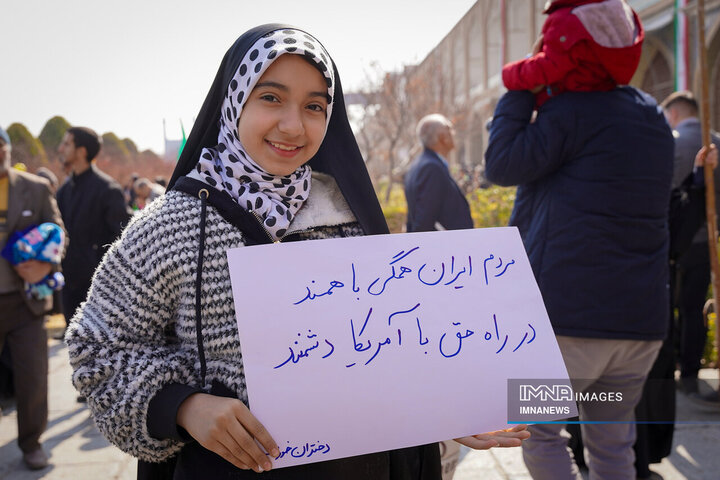 مردم ایران همگی باهمند
در راه حق با آمریکا دشمنند
دختران خورد
IMNA IMAGES
IMNANEWS